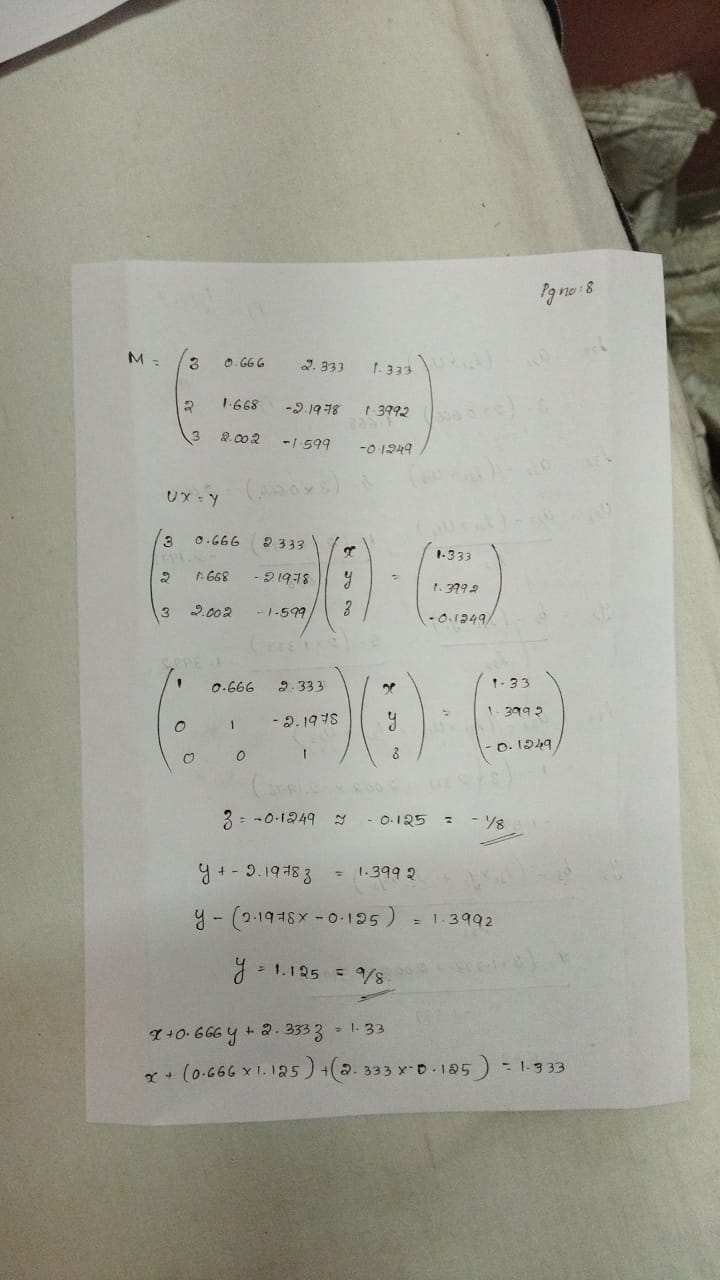 Pg no: 8
M = ( 3 0.666 2.333 1.333
2 1.668 -2.1978 1.3992
3 2.002 -1.599 -0.1249 )
UX = Y
( 3 0.666 2.333 ) ( x ) = ( 1.333 )
( 2 1.668 -2.1978 ) ( y ) ( 1.3992 )
( 3 2.002 -1.599 ) ( z ) ( -0.1249 )
( 1 0.666 2.333 ) ( x ) = ( 1.33 )
( 0 1 -2.1978 ) ( y ) ( 1.3992 )
( 0 0 1 ) ( z ) ( -0.1249 )
z = -0.1249 ≈ -0.125 = -1/8
y + -2.1978z = 1.3992
y - (2.1978 x -0.125) = 1.3992
y = 1.125 = 9/8
x + 0.666y + 2.333z = 1.33
x + (0.666 x 1.125) + (2.333 x -0.125) = 1.333